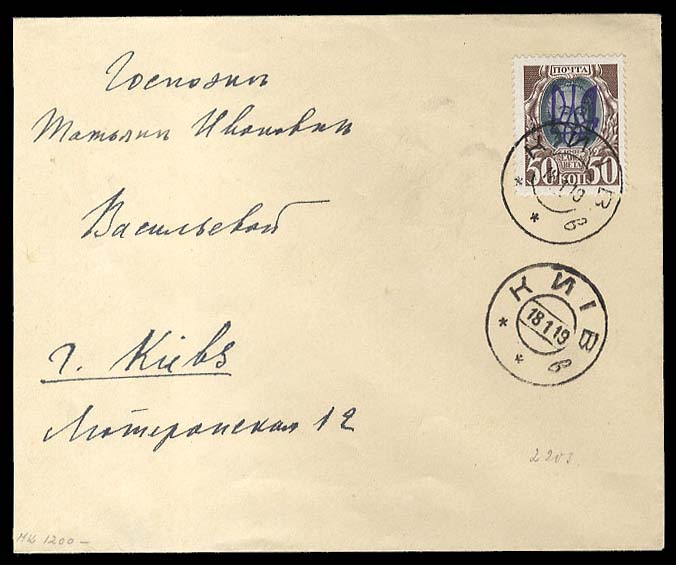 Госпожѣ
Татьянѣ Ивановнѣ
Васильевой
г. Кіевъ
Лютеранская 12
ПОЧТА
50 КОП 50
КИІВ
18 1 19
в
КИІВ
18 1 19
в
2203
МК 1200-